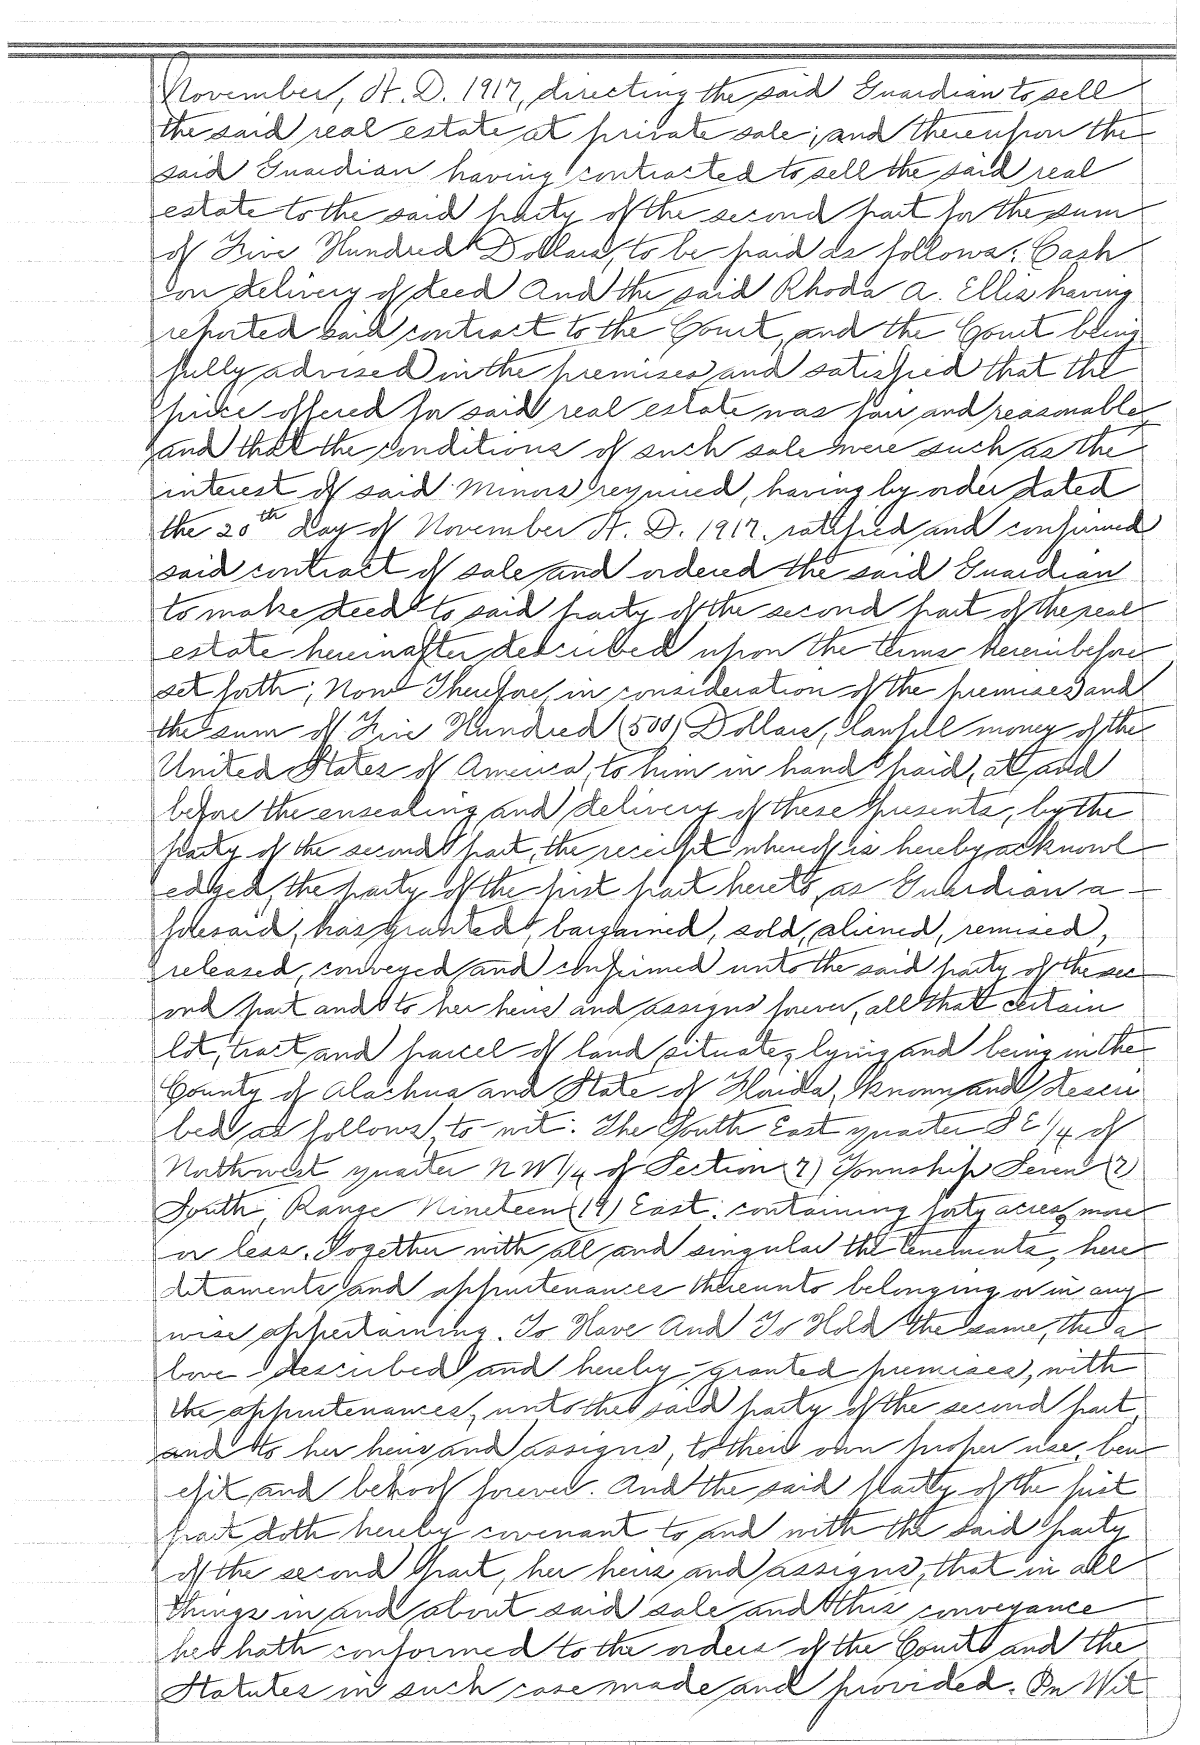 November, A. D. 1917, directing the said Guardian to sell
the said real estate at private sale; and thereupon the
said Guardian having contracted to sell the said real
estate to the said party of the second part for the sum
of Five Hundred Dollars, to be paid as follows: Cash
on delivery of deed And the said Rhoda A. Ellis having
reported said contract to the Court, and the Court being
fully advised in the premises and satisfied that the
price offered for said real estate was fair and reasonable,
and that the conditions of such sale were such as the
interest of said Minors required, having by order dated
the 20th day of November A. D. 1917. ratified and confirmed
said contract of sale and ordered the said Guardian
to make deed to said party of the second part of the real
estate hereinafter described upon the terms hereinbefore
set forth; Now Therefore, in consideration of the premises and
the sum of Five Hundred (500) Dollars, lawfull money of the
United States of America, to him in hand paid, at and
before the ensealing and delivery of these presents, by the
party of the second part, the receipt whereof is hereby acknowl
edged, the party of the first part hereto, as Guardian a-
foresaid, has granted, bargained, sold, aliened, remised,
released, conveyed and confirmed unto the said party of the sec
ond part and to her heirs and assigns forever, all that certain
lot, tract and parcel of land situate, lying and being in the
County of Alachua and State of Florida, known and descri
bed as follows, to-wit: The South East quarter S E 1/4 of
Northwest quarter N W 1/4 of Section (7) Township Seven (7)
South, Range Nineteen (19) East. containing forty acres, more
or less. Together with all and singular the tenements, here
ditaments and appurtenances thereunto belonging or in any
wise appertaining. To Have And To Hold the same, the a
bove described and hereby granted premises, with
the appurtenances, unto the said party of the second part,
and to her heirs and assigns, to their own proper use, ben
efit and behoof forever. And the said party of the first
part doth hereby covenant to and with the said party
of the second part, her heirs and assigns, that in all
things in and about said sale and this conveyance
he hath conformed to the orders of the Court and the
Statutes in such case made and provided. In Wit